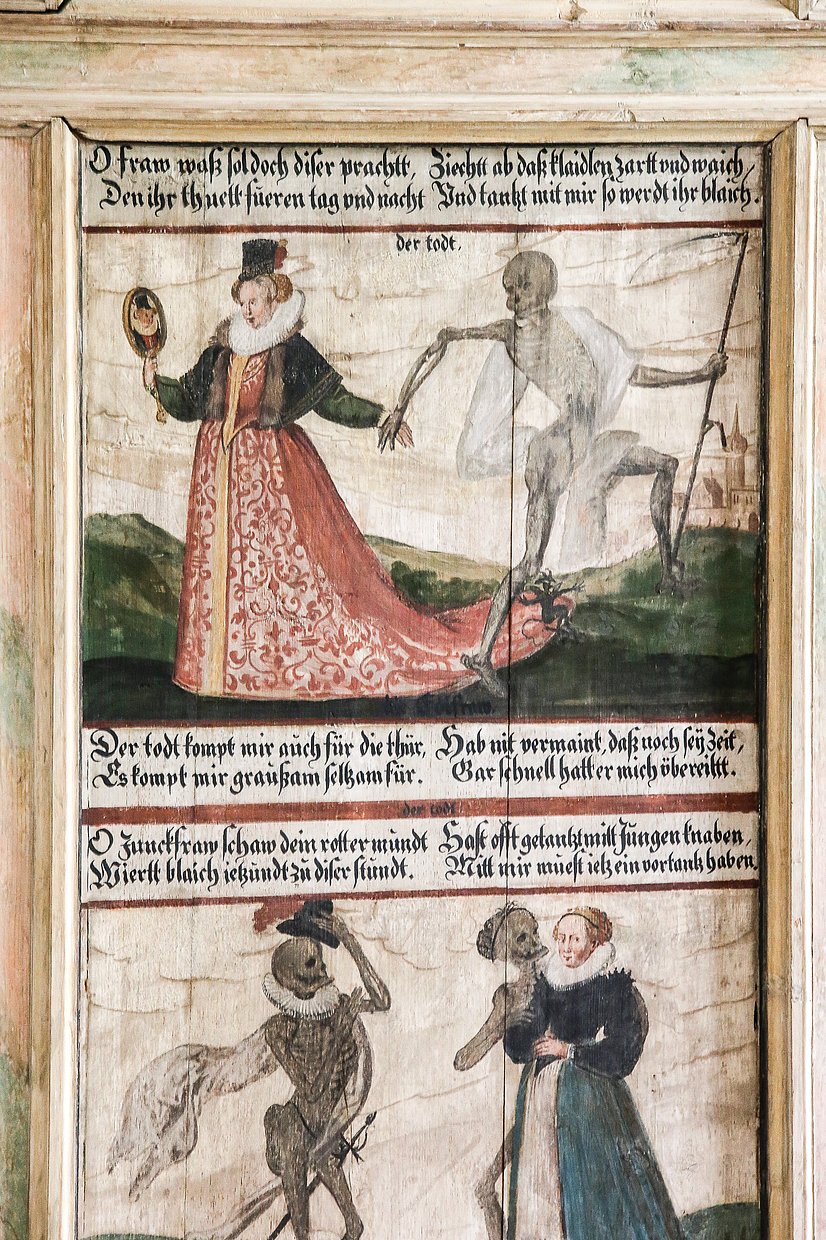 O fraw waß sol doch diser prachtt, Ziechtt ab daß klaidlen zartt vnd waich,
Den ihr thuett füeren tag vnd nacht Vnd tantzt mit mir so werdt ihr blaich.
der todt.
Der todt kompt mir auch für die thür, Hab nit vermaint, daß noch seÿ Zeit,
Es kompt mir graußam seltzam für. Gar schnell hatt er mich übereiltt.
der todt
O Junckfraw schaw dein rotter mundt Hast offt getantzt mitt Jungen knaben,
Wiertt blaich ietzundt zu diser stundt. Mitt mir muest ietz ein vortantz haben.